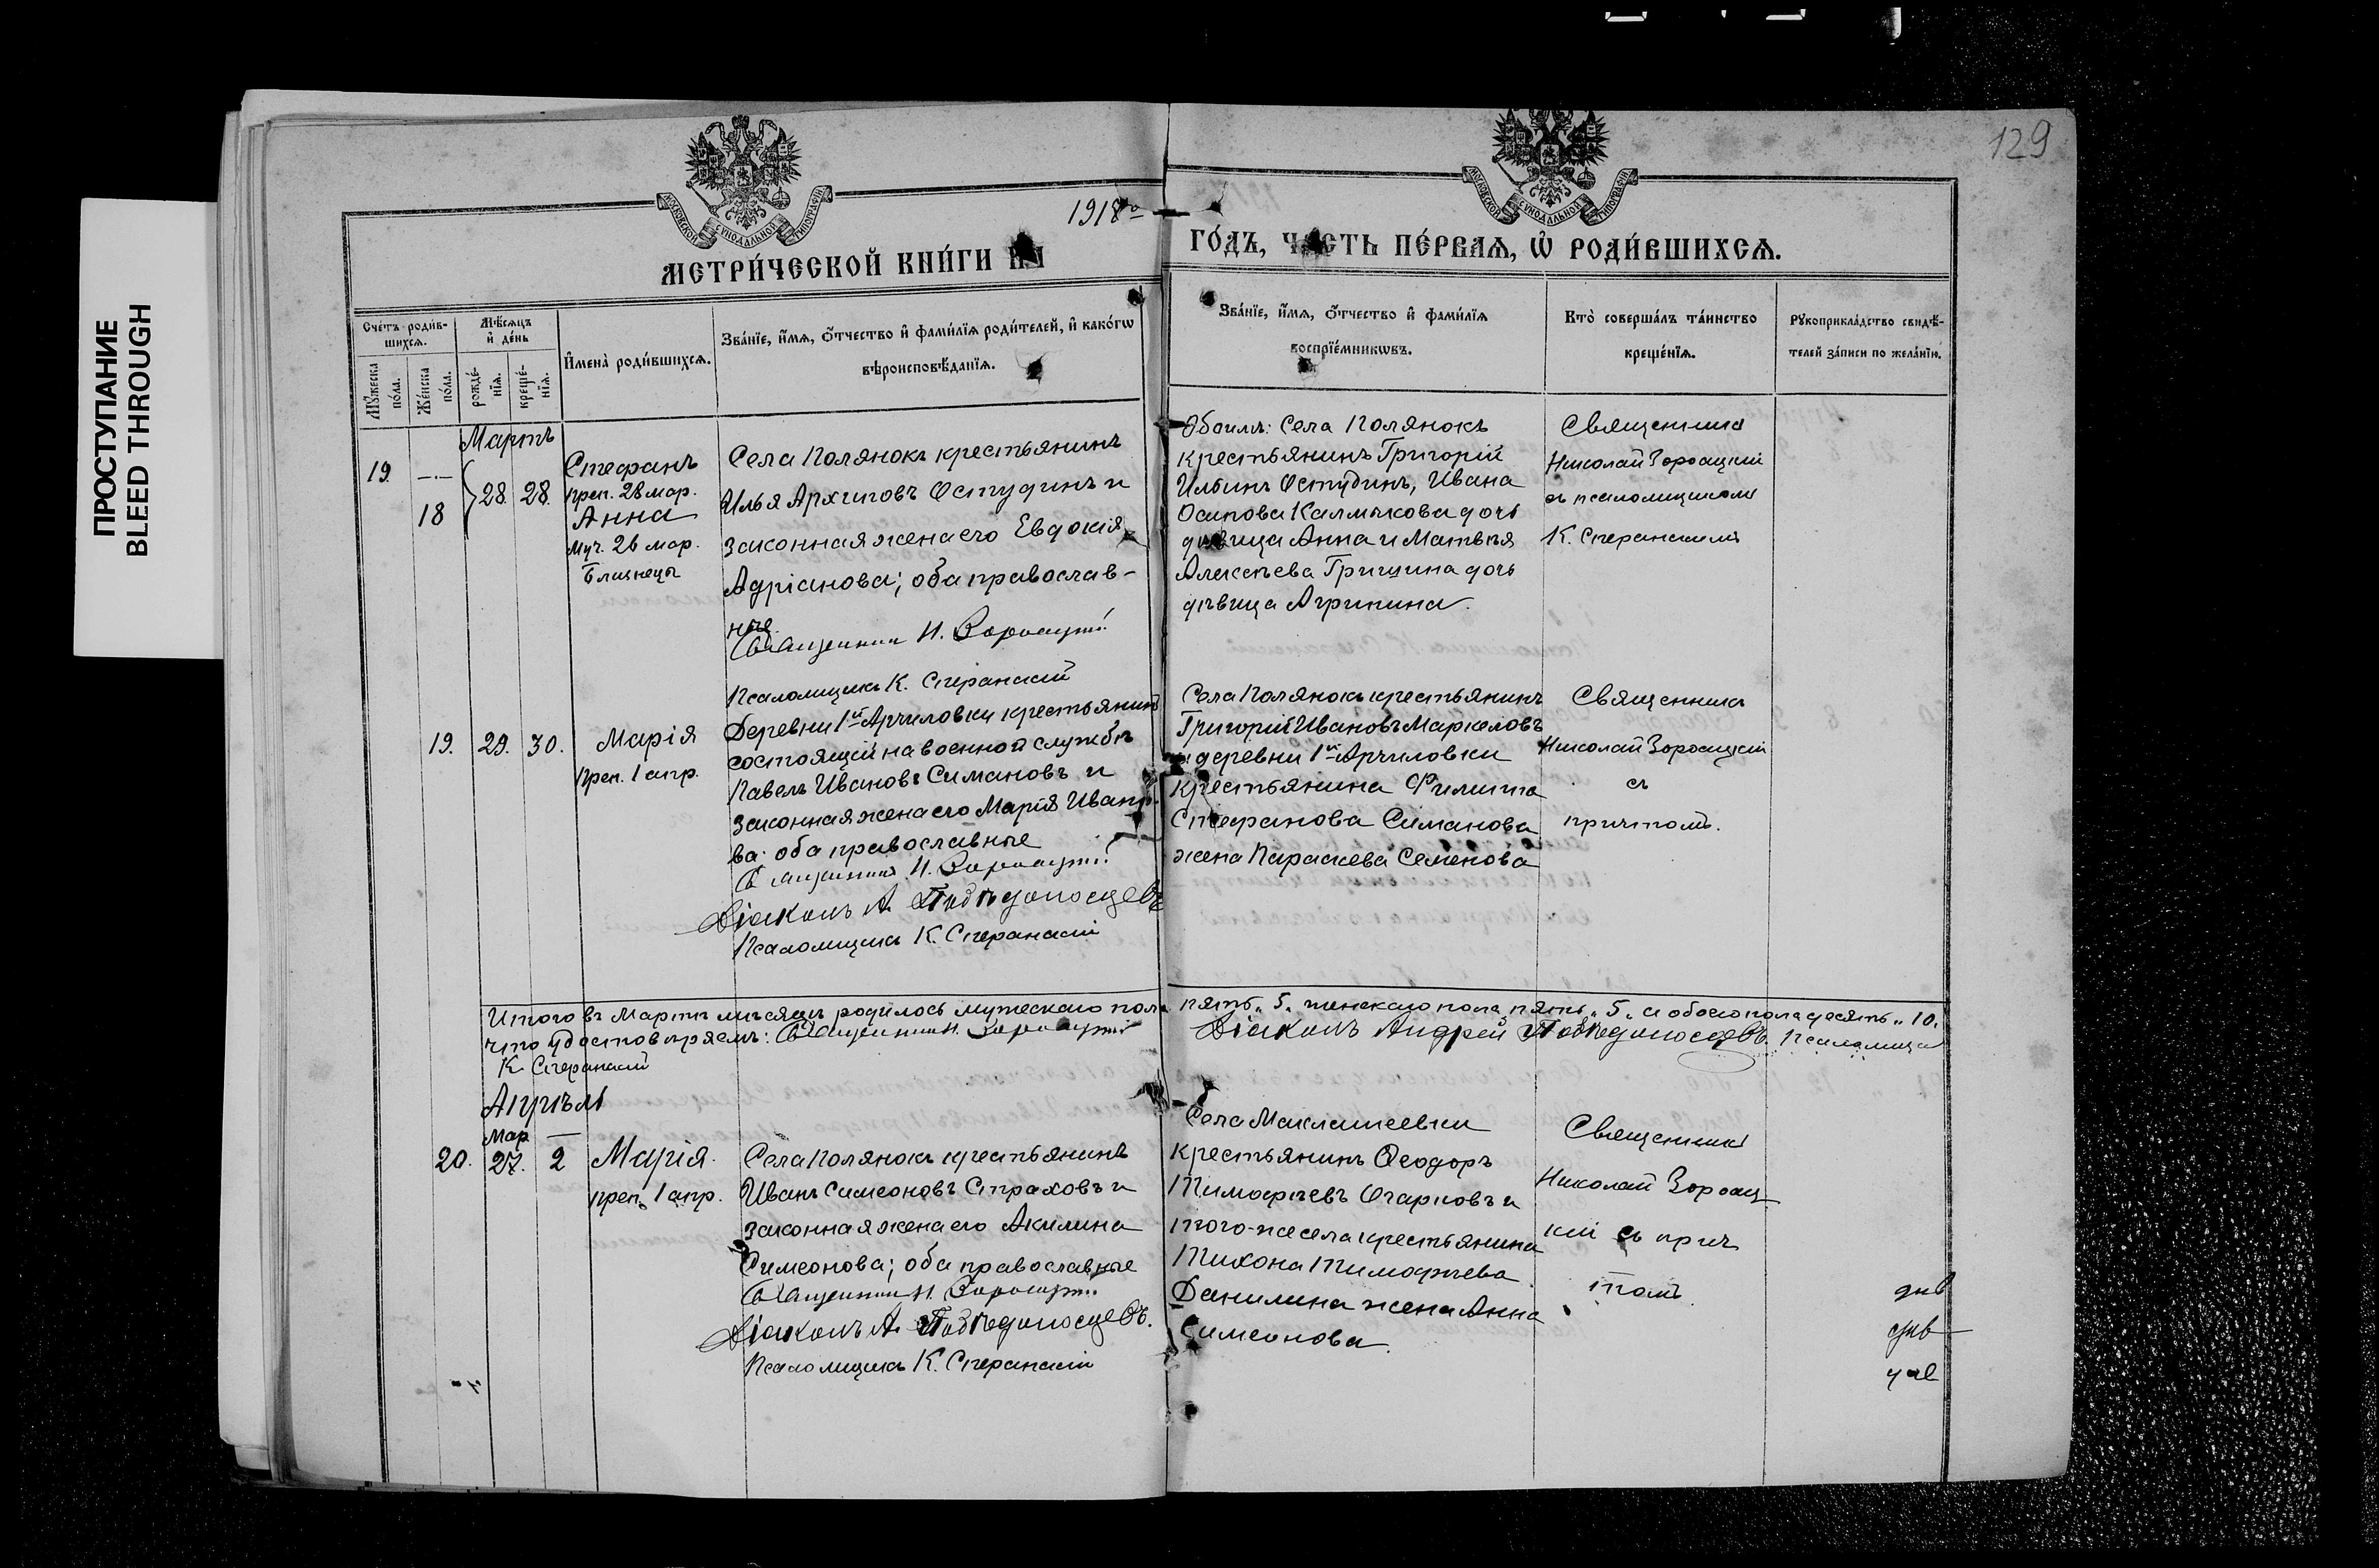 129
ПРОСТУПАНИЕ
BLEED THROUGH
МОСКОВСКОЙ СУНОДАЛЬНОЙ ТИПОГРАФІИ
МОСКОВСКОЙ СУНОДАЛЬНОЙ ТИПОГРАФІИ
1918 го
МЕТРИ́ЧЕСКОЙ КНИ́ГИ НА
ГО́ДЪ, ЧА́СТЬ ПЕ́РВАЯ, Ѡ РОДИ́ВШИХСЯ.
Сче́тъ роди́в-
шихся.
Му́жеска
по́ла.
Же́нска
по́ла.
Мѣ́сяцъ
и де́нь
рожде́-
нїя.
креще́-
нїя.
Имена̀ роди́вшихся.
Зва́нїе, и́мя, о́тчество и фами́лїя роди́телей, и како́гѡ
вѣроисповѣ́данїя.
Зва́нїе, и́мя, о́тчество и фами́лїя
воспрїе́мникѡвъ.
Кто̀ соверша́лъ та́инство
креще́нїя.
Рукоприкла́дство свидѣ́-
телей за́писи по жела́нїю.
Мартъ
19.
18
28. 28.
Стефанъ
преп. 28 мар.
Анна
муч. 26 мар.
Близнецы
Села Полянокъ крестьянинъ
Илья Архиповъ Остудинъ и
законная жена его Евдокія
Адріанова; оба православ-
ные.
Священникъ Н. Зороацкій
Псаломщикъ К. Сперанскій
Обоимъ: Села Полянокъ
крестьянинъ Григорій
Ильинъ Остудинъ, Ивана
Осипова Калмыкова дочь
дѣвица Анна и Матвѣя
Алексѣева Гришина дочь
дѣвица Агрипина.
Священникъ
Николай Зороацкій
съ псаломщикомъ
К. Сперанскимъ
19. 29. 30.
Марія
преп. 1 апр.
Деревни 1й Арчиловки крестьянинъ
состоящій на военной службѣ
Павелъ Ивановъ Симановъ и
законная жена его Марія Ивано-
ва; оба православные
Священникъ Н. Зороацкій
Діаконъ А. Побѣдоносцевъ
Псаломщикъ К. Сперанскій
Села Полянокъ крестьянинъ
Григорій Ивановъ Маркеловъ
и деревни 1й Арчиловки
крестьянина Филиппа
Стефанова Симанова
жена Параскева Семенова
Священникъ
Николай Зороацкій
съ
причтомъ.
Итого въ Мартѣ мѣсяцѣ родилось мужескаго пола пять „5„ женскаго пола пять „5„ а обоего пола десять „10„
что удостовѣряемъ: Священникъ Н. Зороацкій Діаконъ Андрей Побѣдоносцевъ. Псаломщикъ
К. Сперанскій
Апрѣль
Мар
20. 27. 2
Марія.
преп. 1 апр.
Села Полянокъ крестьянинъ
Иванъ Симеоновъ Страховъ и
законная жена его Акилина
Симеонова; оба православные
Священникъ Н. Зороацкій
Діаконъ А. Побѣдоносцевъ.
Псаломщикъ К. Сперанскій
Села Маклашеевки
крестьянинъ Ѳеодоръ
Тимофѣевъ Огарковъ и
того-же села крестьянина
Тихона Тимофѣева
Данилина жена Анна
Симеонова.
Священникъ
Николай Зороац
кій съ прич
томъ.